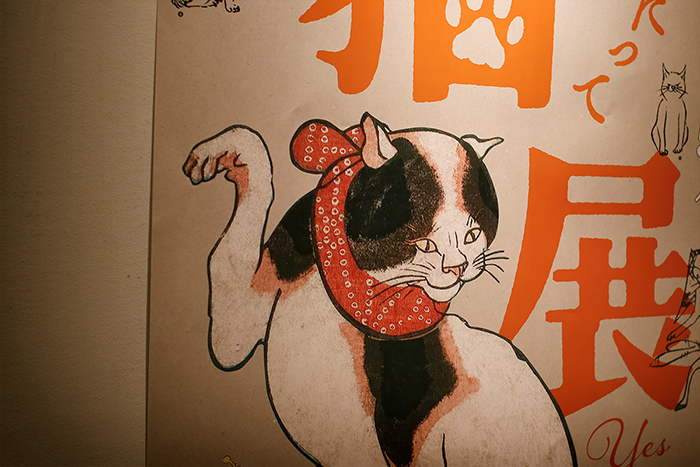 って
猫展
Yes